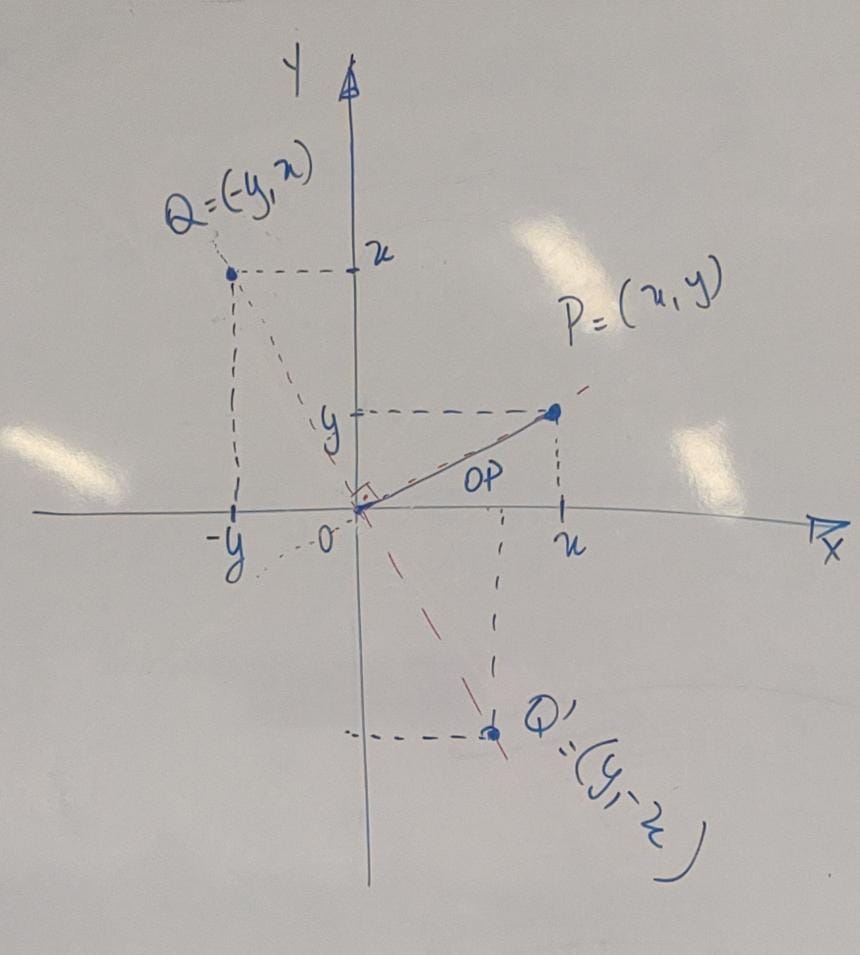 Y
Q=(-y,x)
x
P=(x,y)
y
OP
-y
O
x
X
Q'=(y,-x)